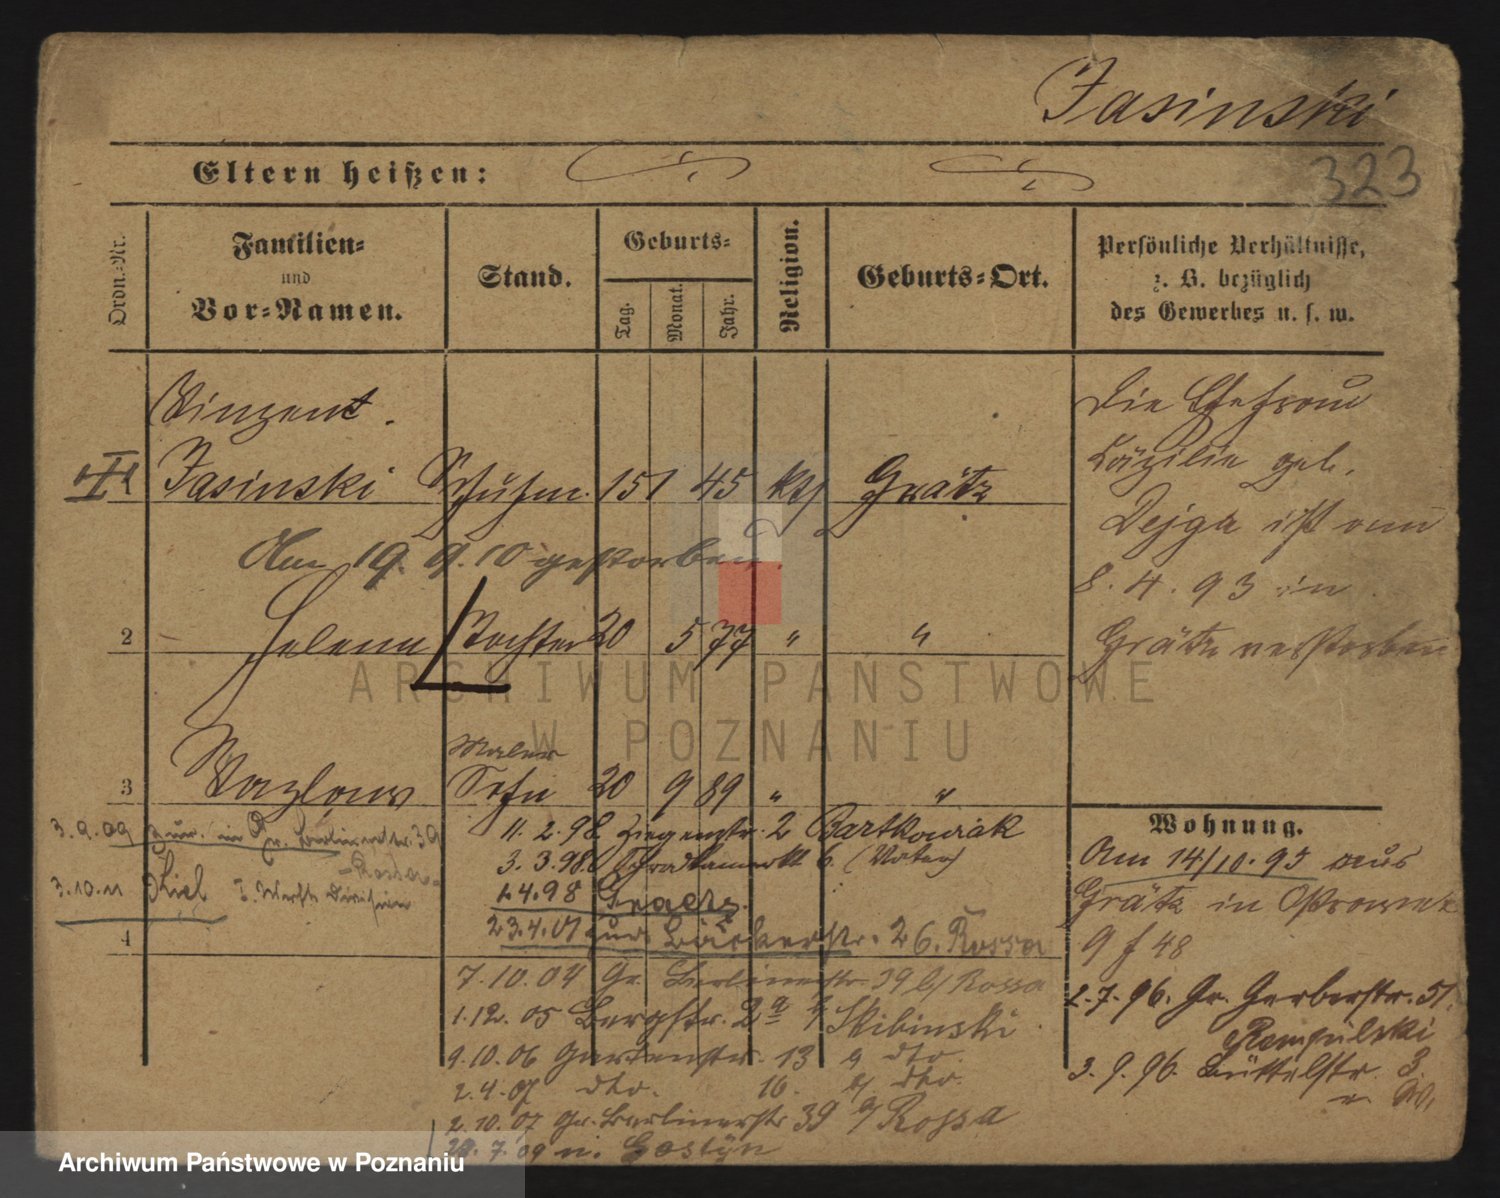 Jasinski
323
Eltern heißen:
Ordn.-Nr.
Familien-
und
Vor-Namen.
Stand.
Geburts-
Tag.
Monat.
Jahr.
Religion.
Geburts-Ort.
Persönliche Verhältnisse,
z. B. bezüglich
des Gewerbes u. s. w.
Vinzent
Jasinski Schuhm. 15 1 45 kth Grätz
Am 19. 9. 10 gestorben.
2 Helena Tochter 20 5 77 " "
Maler
3 Wazlaw Sohn 20 9 89 " "
Die Ehefrau
Cäzilie geb.
Dejga ist am
8. 4. 93 in
Grätz verstorben
Wohnung.
Am 14/10. 95 aus
Grätz in
48
2. 7. 96. Gr. Gerberstr. 51.
3. 9. 96. Büttelstr. 3.
11. 2. 98. Ziegenstr. 2 Bartkowiak
3. 3. 98. Schrodkamarkt 6. (Vater)
1. 4. 98 Graetz.
23. 4. 01 zur. Bäckerstr. 26. Rossa
7. 10. 04 Gr. Berlinerstr. 39 b/ Rossa
1. 12. 05 Bergstr. 2a b/ Skibinski
9. 10. 06 Gartenstr. 13 b/ dto.
2. 4. 07 dto. 16. b/ dto.
2. 10. 07 Gr. Berlinerstr. 39 b/ Rossa
29. 7. 09 n. Gostyn
3. 9. 09 zur. in Gr. Berlinerstr. 39
- Rossa -
3. 10. 11 Kiel I. Werft Division
4
ARCHIWUM PAŃSTWOWE
W POZNANIU
Archiwum Państwowe w Poznaniu